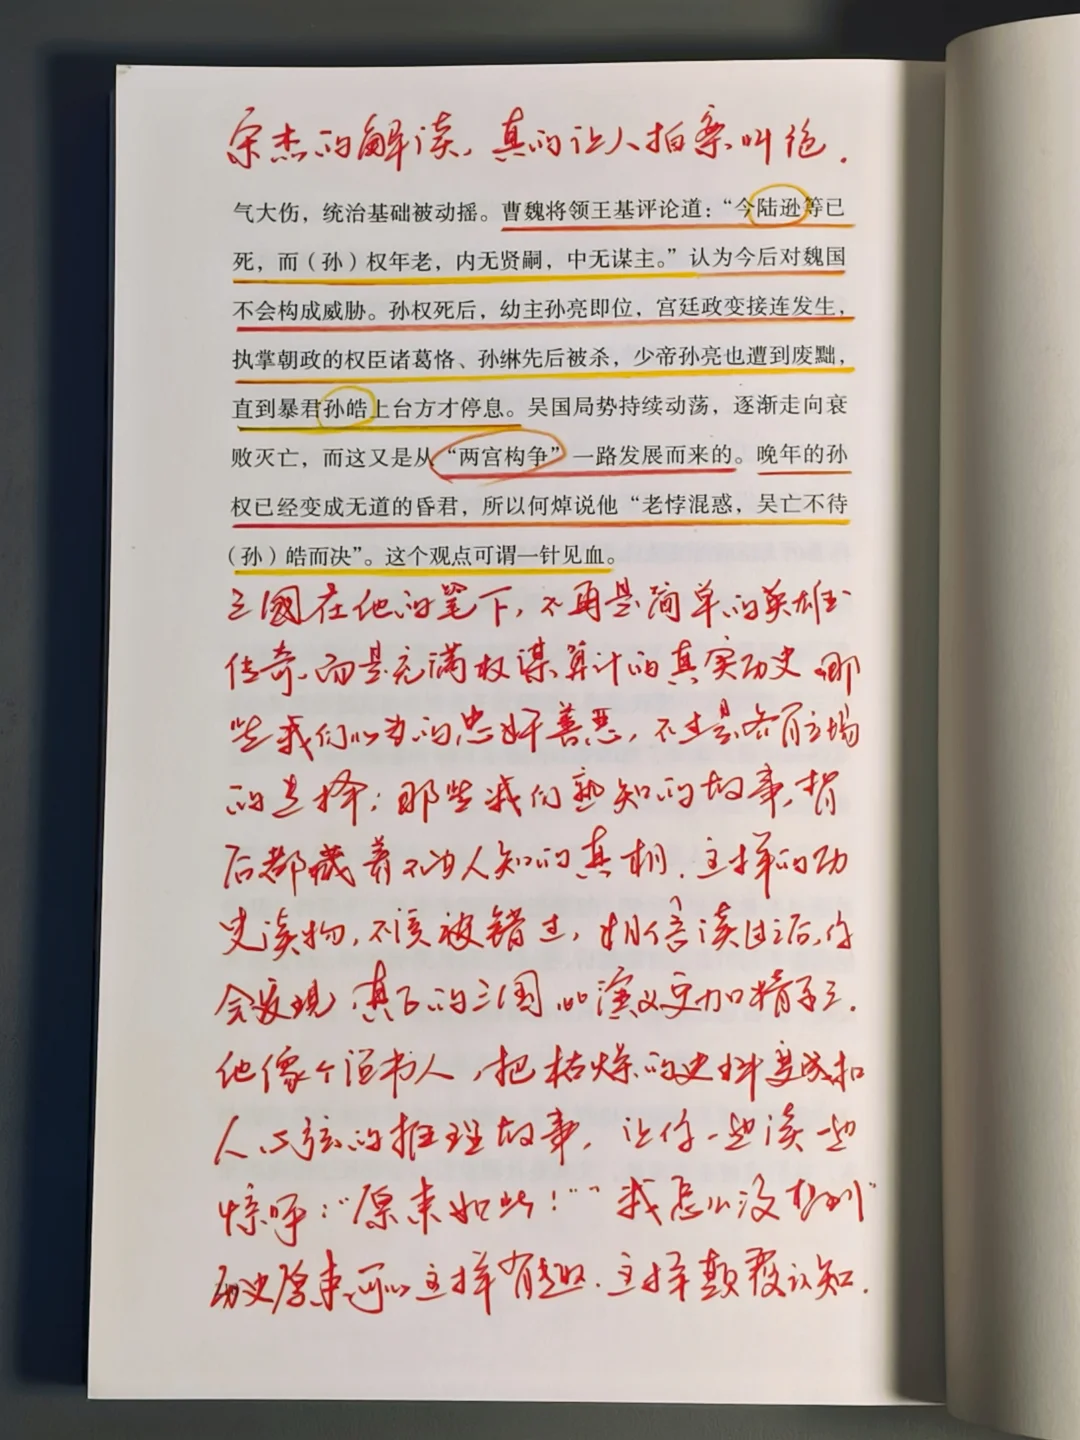 宋杰的解读，真的让人拍案叫绝.
气大伤，统治基础被动摇。曹魏将领王基评论道：“今陆逊等已
死，而（孙）权年老，内无贤嗣，中无谋主。”认为今后对魏国
不会构成威胁。孙权死后，幼主孙亮即位，宫廷政变接连发生，
执掌朝政的权臣诸葛恪、孙綝先后被杀，少帝孙亮也遭到废黜，
直到暴君孙皓上台方才停息。吴国局势持续动荡，逐渐走向衰
败灭亡，而这又是从“两宫构争”一路发展而来的。晚年的孙
权已经变成无道的昏君，所以何焯说他“老悖混惑，吴亡不待
（孙）皓而决”。这个观点可谓一针见血。
三國在他的笔下，不再是简单的英雄
传奇、而是充满权谋算计的真实历史.那
些我们以为的忠奸善恶，不过是各自立场
的选择；那些我们熟知的故事，背
后都藏着不为人知的真相.这样的历
史读物，不该被错过，相信读过之后，你
会发现，真正的三国比演义更加精彩.
他像个说书人，把枯燥的史料变成扣
人心弦的推理故事，让你一边读一边
惊呼：“原来如此！”“我怎么没想到”
历史原来可以这样有趣.这样颠覆认知.